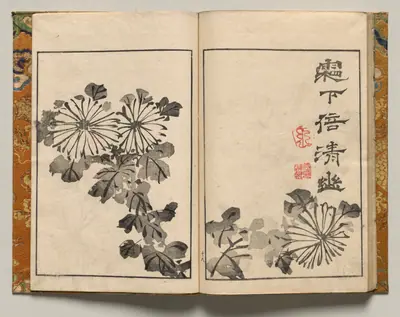 霜下倍清幽